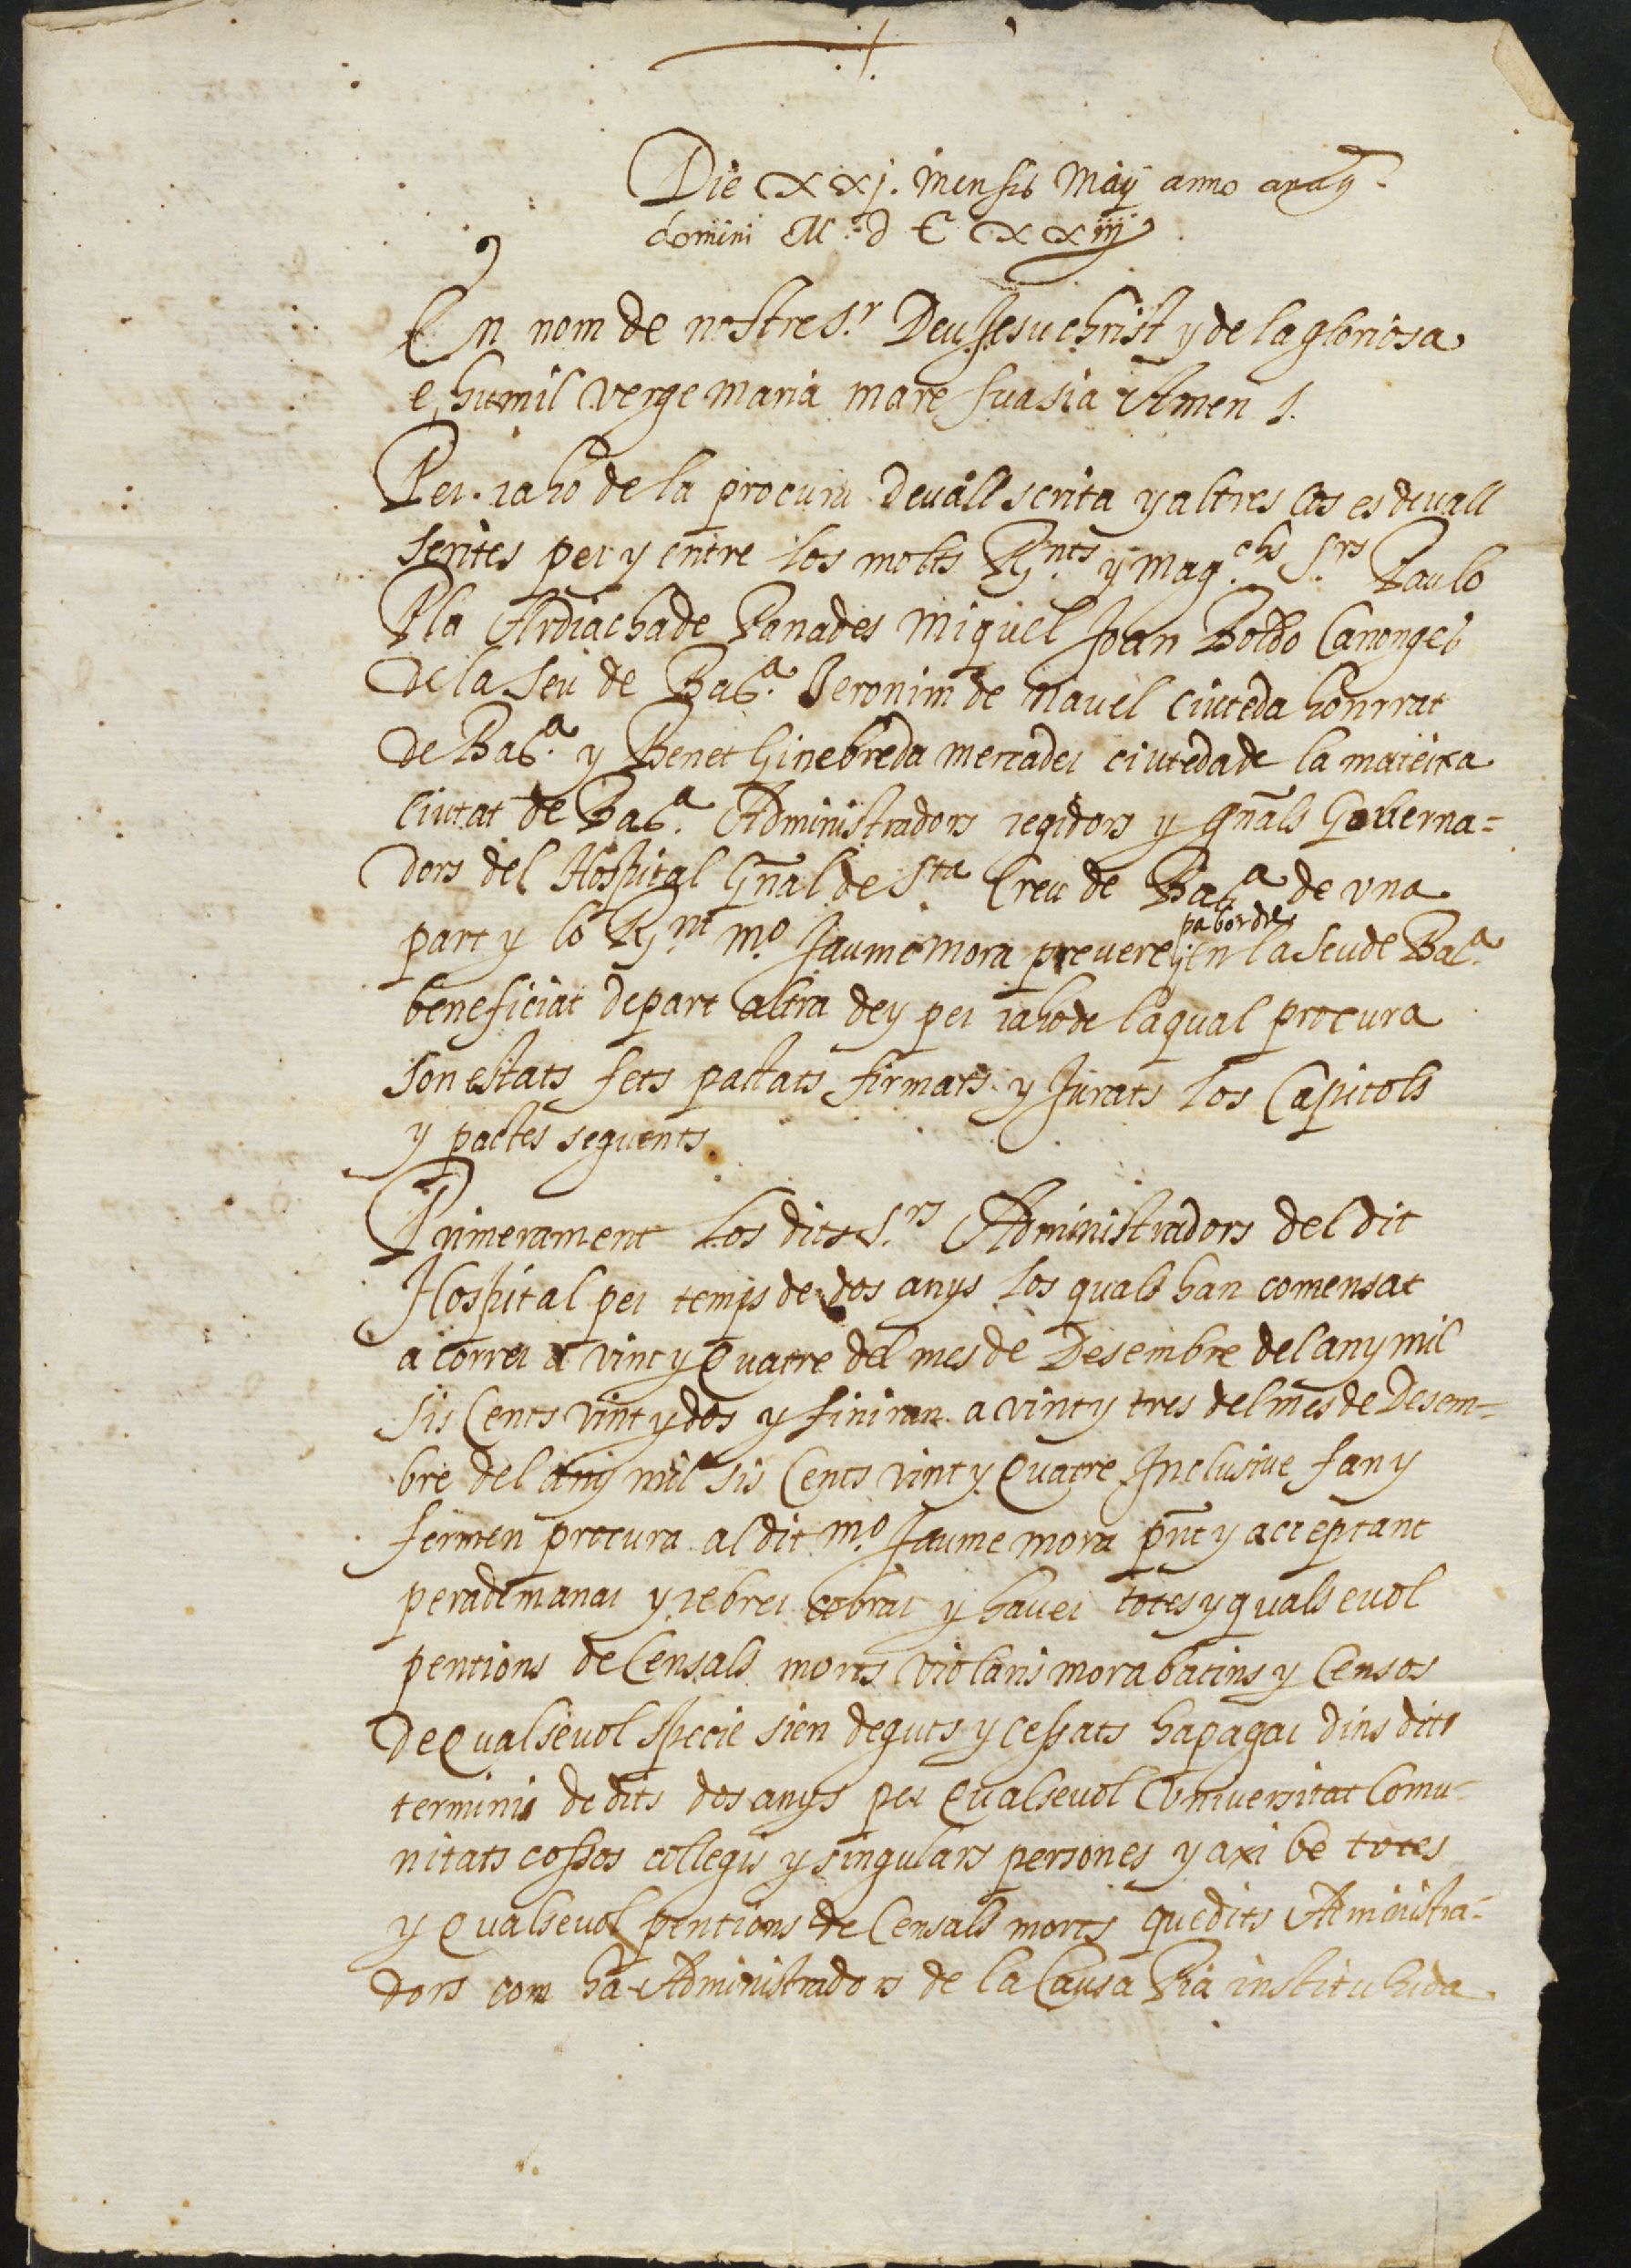 Die xxj. mensis Maij anno a nat.
domini M. d C xxiij
En nom de nostre S.r Deu Jesuchrist y de la gloriosa
e humil verge maria mare sua sia Amen s.
Per raho de la procura devall scrita y altres coses devall
scrites per y entre los molts R.nts y mag.chs S.rs Paulo
Pla Ardiacha de Panades Miquel Joan Boldo Canonges
de la Seu de Bar.a Jeronim de Navel ciuteda honrrat
de Bar.a y Benet Ginebreda mercader ciutedade la mateixa
ciutat de Bar.a Administradors regidors y gñals Goberna=
dors del Hospital Gñal de S.ta Creu de Bar.a de una
part y lo R.nt m.o Jaume Mora prevere y pabordre en la Seu de Bar.a
beneficiat de part altra de y per raho de la qual procura
son estats fets pactats firmats y Jurats los Capitols
y pactes seguents
Primerament los dits S.rs Administradors del dit
Hospital per temps de dos anys los quals han comensat
a correr a vint y Quatre del mes de Desembre del any mil
sis Cents vint y dos y finiran a vint y tres del mes de Desem=
bre del any mil sis Cents vint y Quatre Inclusive fan y
fermen procura al dit m.o Jaume Mora pñt y acceptant
per a demanar y rebrer cobrar y haver totes y quals evol
pentions de Censals morts violaris morabatins y Censos
de Qualsevol specie sien deguts y cessats ha pagar dins dits
termini de dits dos anys per Qualsevol Universitat Comu=
nitats cossos collegis y singulars persones y axi be totes
y Qualsevol pentions de Censals morts que dits Administra=
dors com ha Administradors de la Causa Pia instituhida